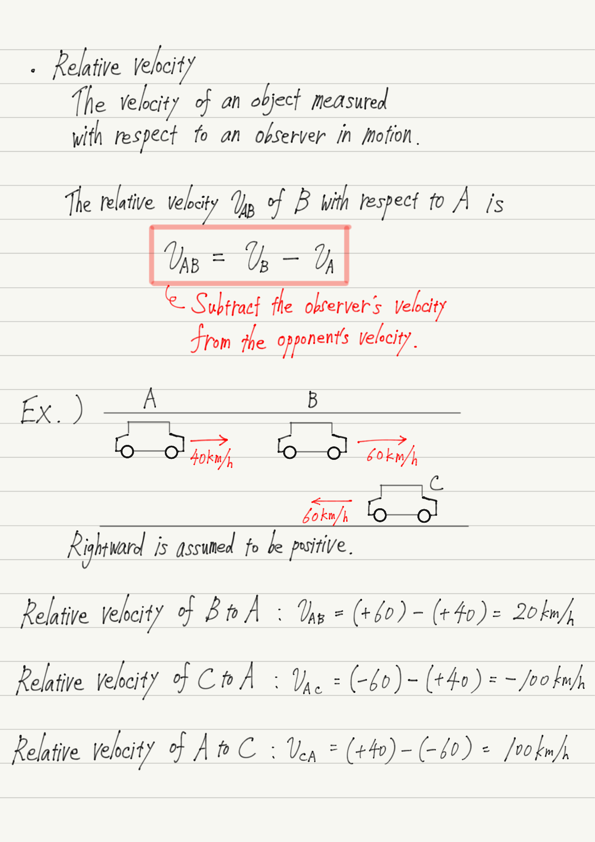 · Relative velocity
The velocity of an object measured
with respect to an observer in motion.
The relative velocity VAB of B with respect to A is
VAB = VB - VA
Subtract the observer's velocity
from the opponent's velocity.
Ex.)
A B
40km/h 60km/h
C
60km/h
Rightward is assumed to be positive.
Relative velocity of B to A : VAB = (+60)-(+40)= 20km/h
Relative velocity of C to A : VAC = (-60)-(+40)=-100km/h
Relative velocity of A to C : VCA = (+40)-(-60) = 100km/h